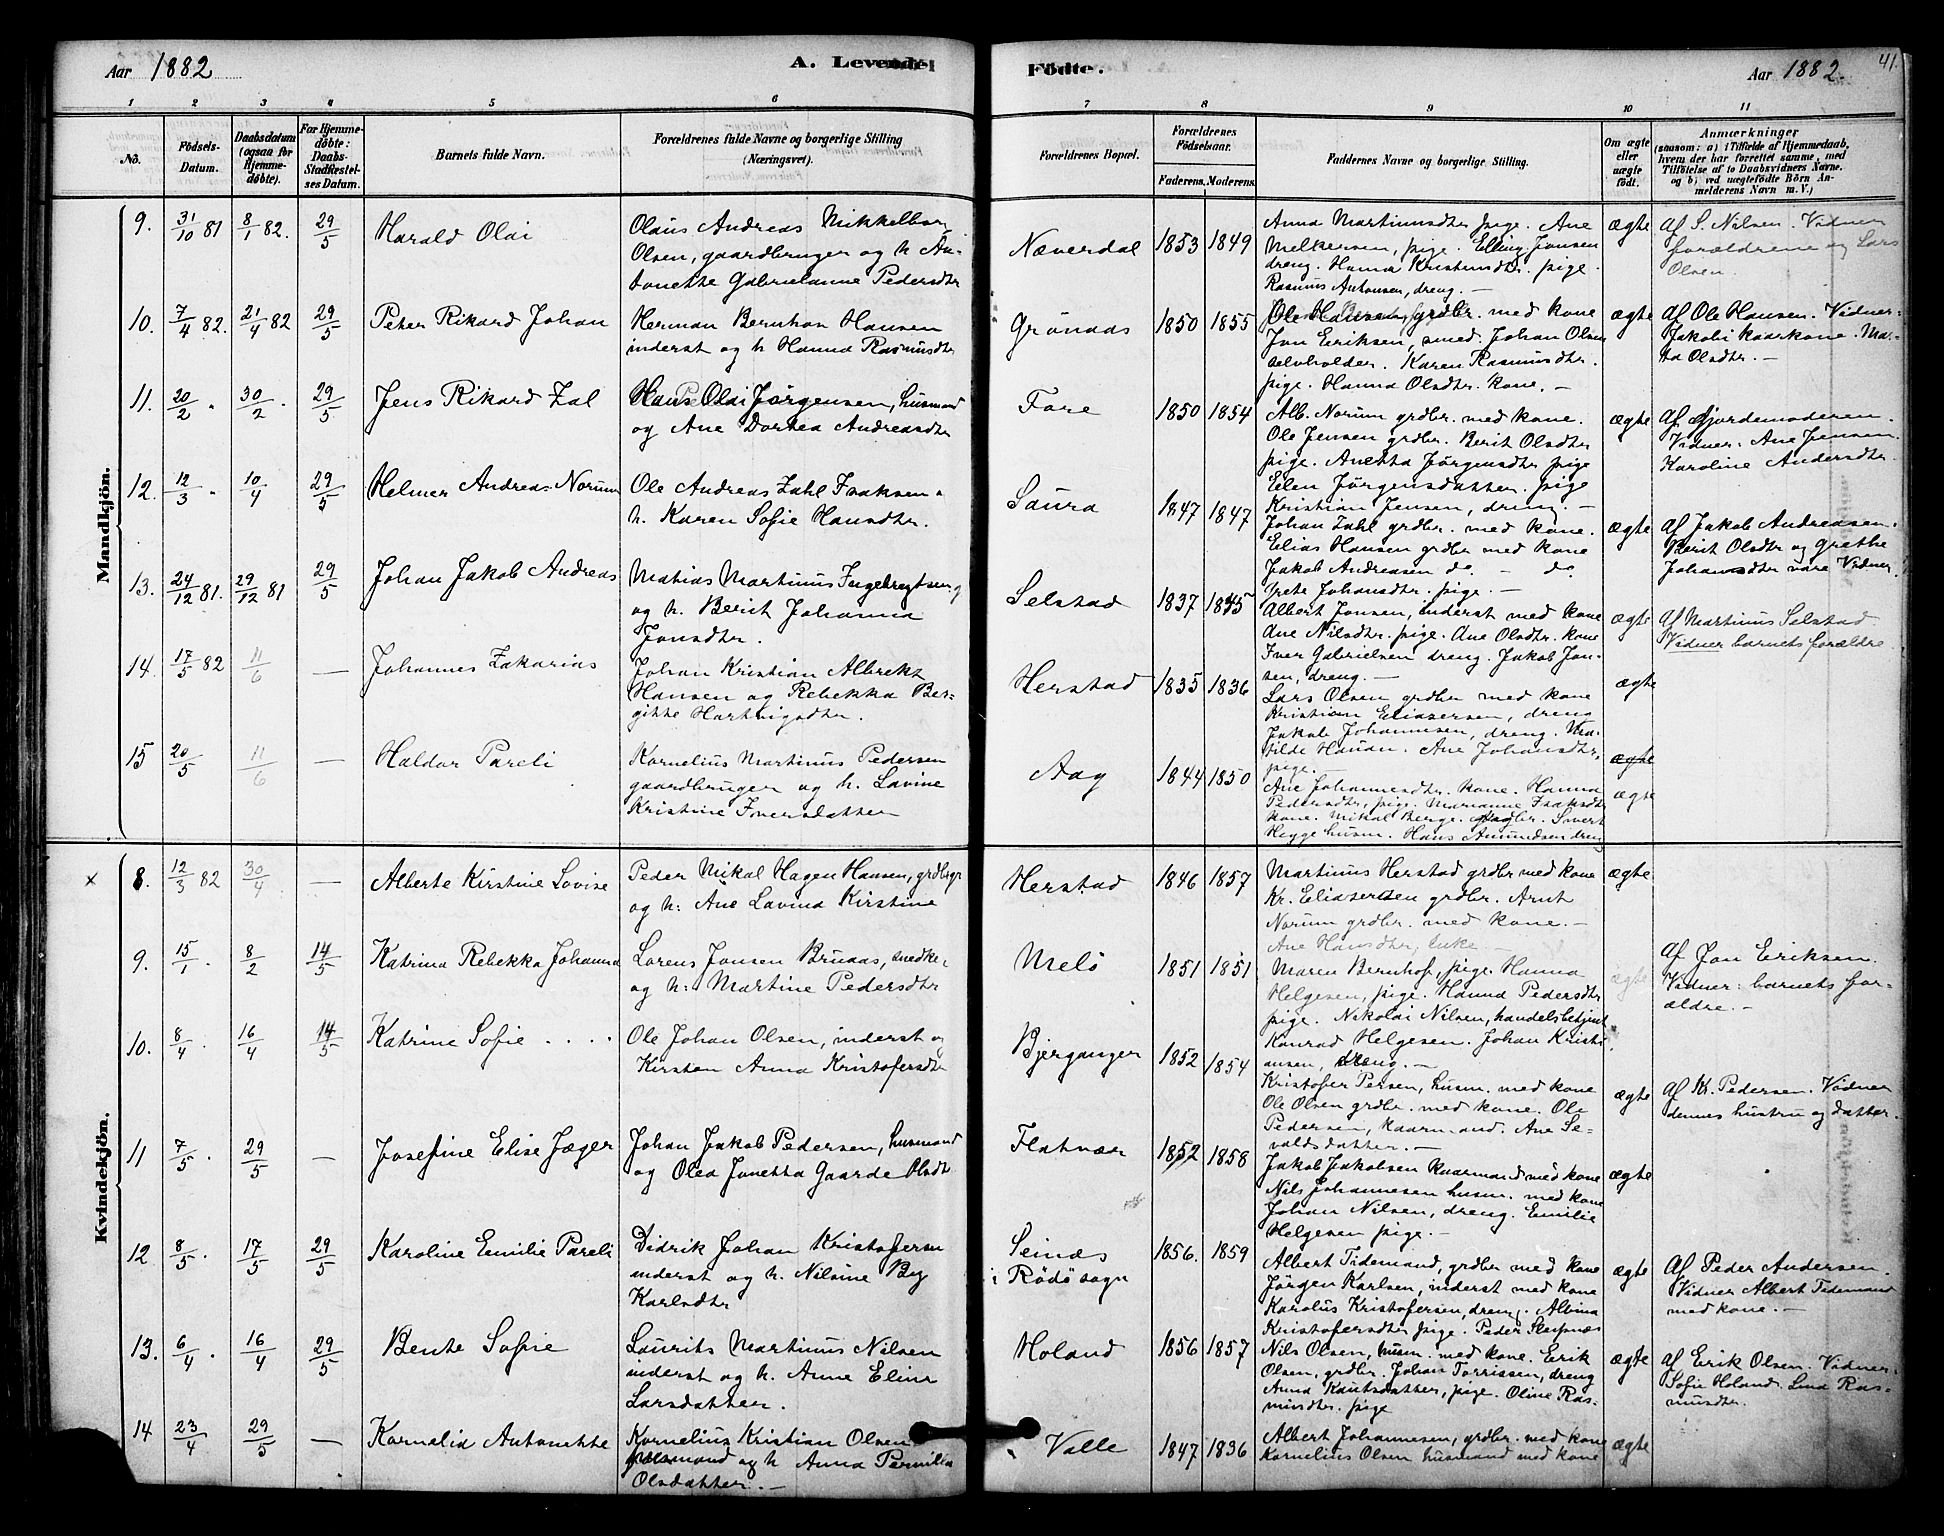 Aar 1882
A. Levende
Fødte.
Aar 1882.
41.
1 2 3 4 5 6 7 8 9 10 11
No.
Fødsels-
Datum.
Daabsdatum
(ogsaa for
Hjemme-
døbte).
For Hjemme-
døbte:
Daabs-
Stadfæstel-
ses Datum.
Barnets fulde Navn.
Forældrenes fulde Navne og borgerlige Stilling
(Næringsvei).
Forældrenes Bopæl.
Forældrenes
Fødselsaar.
Faderens. Moderens.
Faddernes Navne og borgerlige Stilling.
Om ægte
eller
uægte
født.
Anmærkninger
(saasom: a) i Tilfælde af Hjemmedaab,
hvem der har forrettet samme, med
Tilføielse af to Daabsvidners Navne.
og b) ved uægtefødte Børn An-
melderens Navn m. V.)
Mandkjön.
9. 31/10 81 8/1 82. 29/5 Harald Olai
Olaus Andreas Mikkelbor
Olsen, gaardbruger og h. An-
tonette Gabrielanne Pedersdtr
Næverdal 1853 1849
Anna Martinusdtr pige. Ane
Melkersen, pige. Elling Jonsen
dreng. Hanna Kristensdtr. pige.
Rasmus Antonsen, dreng. —
ægte
Af S. Nilsen. Vidner
forældrene og Lars
Olsen.
10. 7/4 82. 21/4 82 29/5 Peter Rikard Johan
Herman Bernhof Hansen
inderst og h Hanna Rasmusdtr
Grönaas 1850 1855
Ole Hansen, grdbr. med kone
Jon Eriksen, smed. Johan Olsen
selvholder. Karen Rasmusdtr.
pige. Hanna Olsdtr. kone. —
ægte
Af Ole Hansen. Vidner:
Jakobi kaarkone. Mar-
ta Olsdtr. —
11. 20/2 " 30/2 . 29/5 Jens Rikard Zal
Hans Olai Jörgensen, husmand
og Ane Dortea Andreasdtr
Fore 1850 1854
Alb. Norum grdbr. med kone.
Ole Jensen grdbr. Berit Olsdtr
pige. Anetta Jörgensdtr pige
Elen Jörgensdatter. pige
Kristian Jensen, dreng. —
ægte
Af Gjordemoderen.
Vidner: Ane Jensen.
Karoline Andersdtr.
12. 12/3 " 10/4 29/5 Helmer Andreas Norum
Ole Andreas Zahl Isaksen o
h. Karen Sofie Hansdtr.
Saura 1847 1847
Johan Zahl grdbr. med kone.
Elias Hansen grdbr med kone
Jakob Andreasen do. — do
Grete Johansdtr. pige. —
ægte
Af Jakob Andreasen.
Berit Olsdtr og Grethe
Johansdtr vare Vidner
13. 24/12 81. 29/12 81 29/5 Johan Jakob Andreas
Matias Martinus Ingebregtsen
og h. Berit Johanna
Jonsdtr.
Selstad 1837 1845
Albert Jonsen, inderst med kone
Ane Nilsdtr. pige. Ane Olsdtr. kone
Iver Gabrielsen dreng. Jakob Jon-
sen, dreng. —
ægte
Af Martinus Selstad
Vidner barnets forældre
14. 17/5 82 11/6 — Johannes Zakarias
Johan Kristian Albrekt
Hansen og Rebekka Ber-
gitte Hartvigsdtr.
Herstad 1835 1836
Lars Olsen grdbr med kone
Kristian Eliasersen, dreng
Jakob Johannesen, dreng. Ma-
tilde Hanan. Ane Johansdtr,
pige.
ægte
15 20/5 11/6 — Haldor Pareli
Kornelius Martinus Pedersen
gaardbruger og h. Lavine
Kristine Iversdatter
Aag 1844 1850
Ane Johannesdtr. kone. Hanna
Pedersdtr, pige. Marianne Isaksdtr
kone. Mikal Berge. grdbr. Sivert
Hegge husm. Hans Amundsen dreng
ægte
ægte
Kvindekjön.
x 8. 12/3 82 30/4 — Alberte Kirstine Lovise
Peder Mikal Hagen Hansen, grdbrgr
og h: Ane Lavina Kirstine
Herstad 1846 1857
Martinus Herstad grdbr med kone
Kr. Eliasersen grdbr. Arnt
Norum grdbr. med kone. —
Ane Hansdtr, enke. —
ægte
9. 15/1 . 8/2 14/5 Katrina Rebekka Johanna
Lorens Jonsen Bruaas, snedker
og h: Martine Pedersdtr
Melö 1851 1851
Maren Bernhof, pige. Hanna
Helgesen, pige. Hanna Pedersdtr
pige. Nikolai Nilsen, handelsbetjent
Konrad Helgesen. Johan Kristi-
ansen, dreng. —
ægte
Af Jon Eriksen.
Vidner: barnets for-
ældre. —
10. 8/4 . 16/4 14/5 Katrine Sofie . . . .
Ole Johan Olsen, inderst og
Kirsten Anna Kristofersdtr
Bjerganger 1852 1854
Kristofer Persen, husm. med kone
Ole Olsen grdbr. med kone. Ole
Pedersen, kaarmand. Ane Se-
valdsdatter. —
ægte
Af Kr. Pedersen. Vidner
dennes hustru og datter.
11 7/5 . 29/5 — Josefine Elise Jæger
Johan Jakob Pedersen, husmand
og Olea Jonetta Gaarde Olsdtr
Flatvær 1852 1858
Jakob Jakobsen kaarmand med kone
Nils Johannesen husm. med kone
Johan Nilsen, dreng. Emilie
Helgesen pige. —
ægte
12 8/5 . 17/5 29/5 Karoline Emilie Pareli
Didrik Johan Kristofersen
inderst og h. Nilsine Berg
Karlsdtr
Seinæs
i Rödösogn 1856. 1859
Albert Tidemand, grdbr med kone
Jörgen Karlsen, inderst med kone
Karolus Kristofersen, dreng. Albina
Kristofersdtr pige. Peder Skipnæs
ægte
Af Peder Andersen.
Vidner Albert Tidemand
med kone. —
13. 6/4 . 16/4 29/5 Bente Sofie
Laurits Martinus Nilsen
inderst og h. Anne Elina
Larsdatter.
Holand 1856 1857
Nils Olsen, husm. med kone. Erik
Olsen, grdbr. Johan Torrissen, dreng
Anna Knutsdatter, pige. Oline Ras-
musdtr. pige
ægte
Af Erik Olsen. Vidner
Sofie Holand. Lina Ras-
musdtr.
14 23/4 29/5 — Kornelia Antonette
Kornelius Kristian Olsen
husmand og h Anna Pernilla
Olsdatter. —
Valle 1847 1836
Albert Johannesen, grdbr. med kone
Kornelius Olsen husmand med kone
ægte